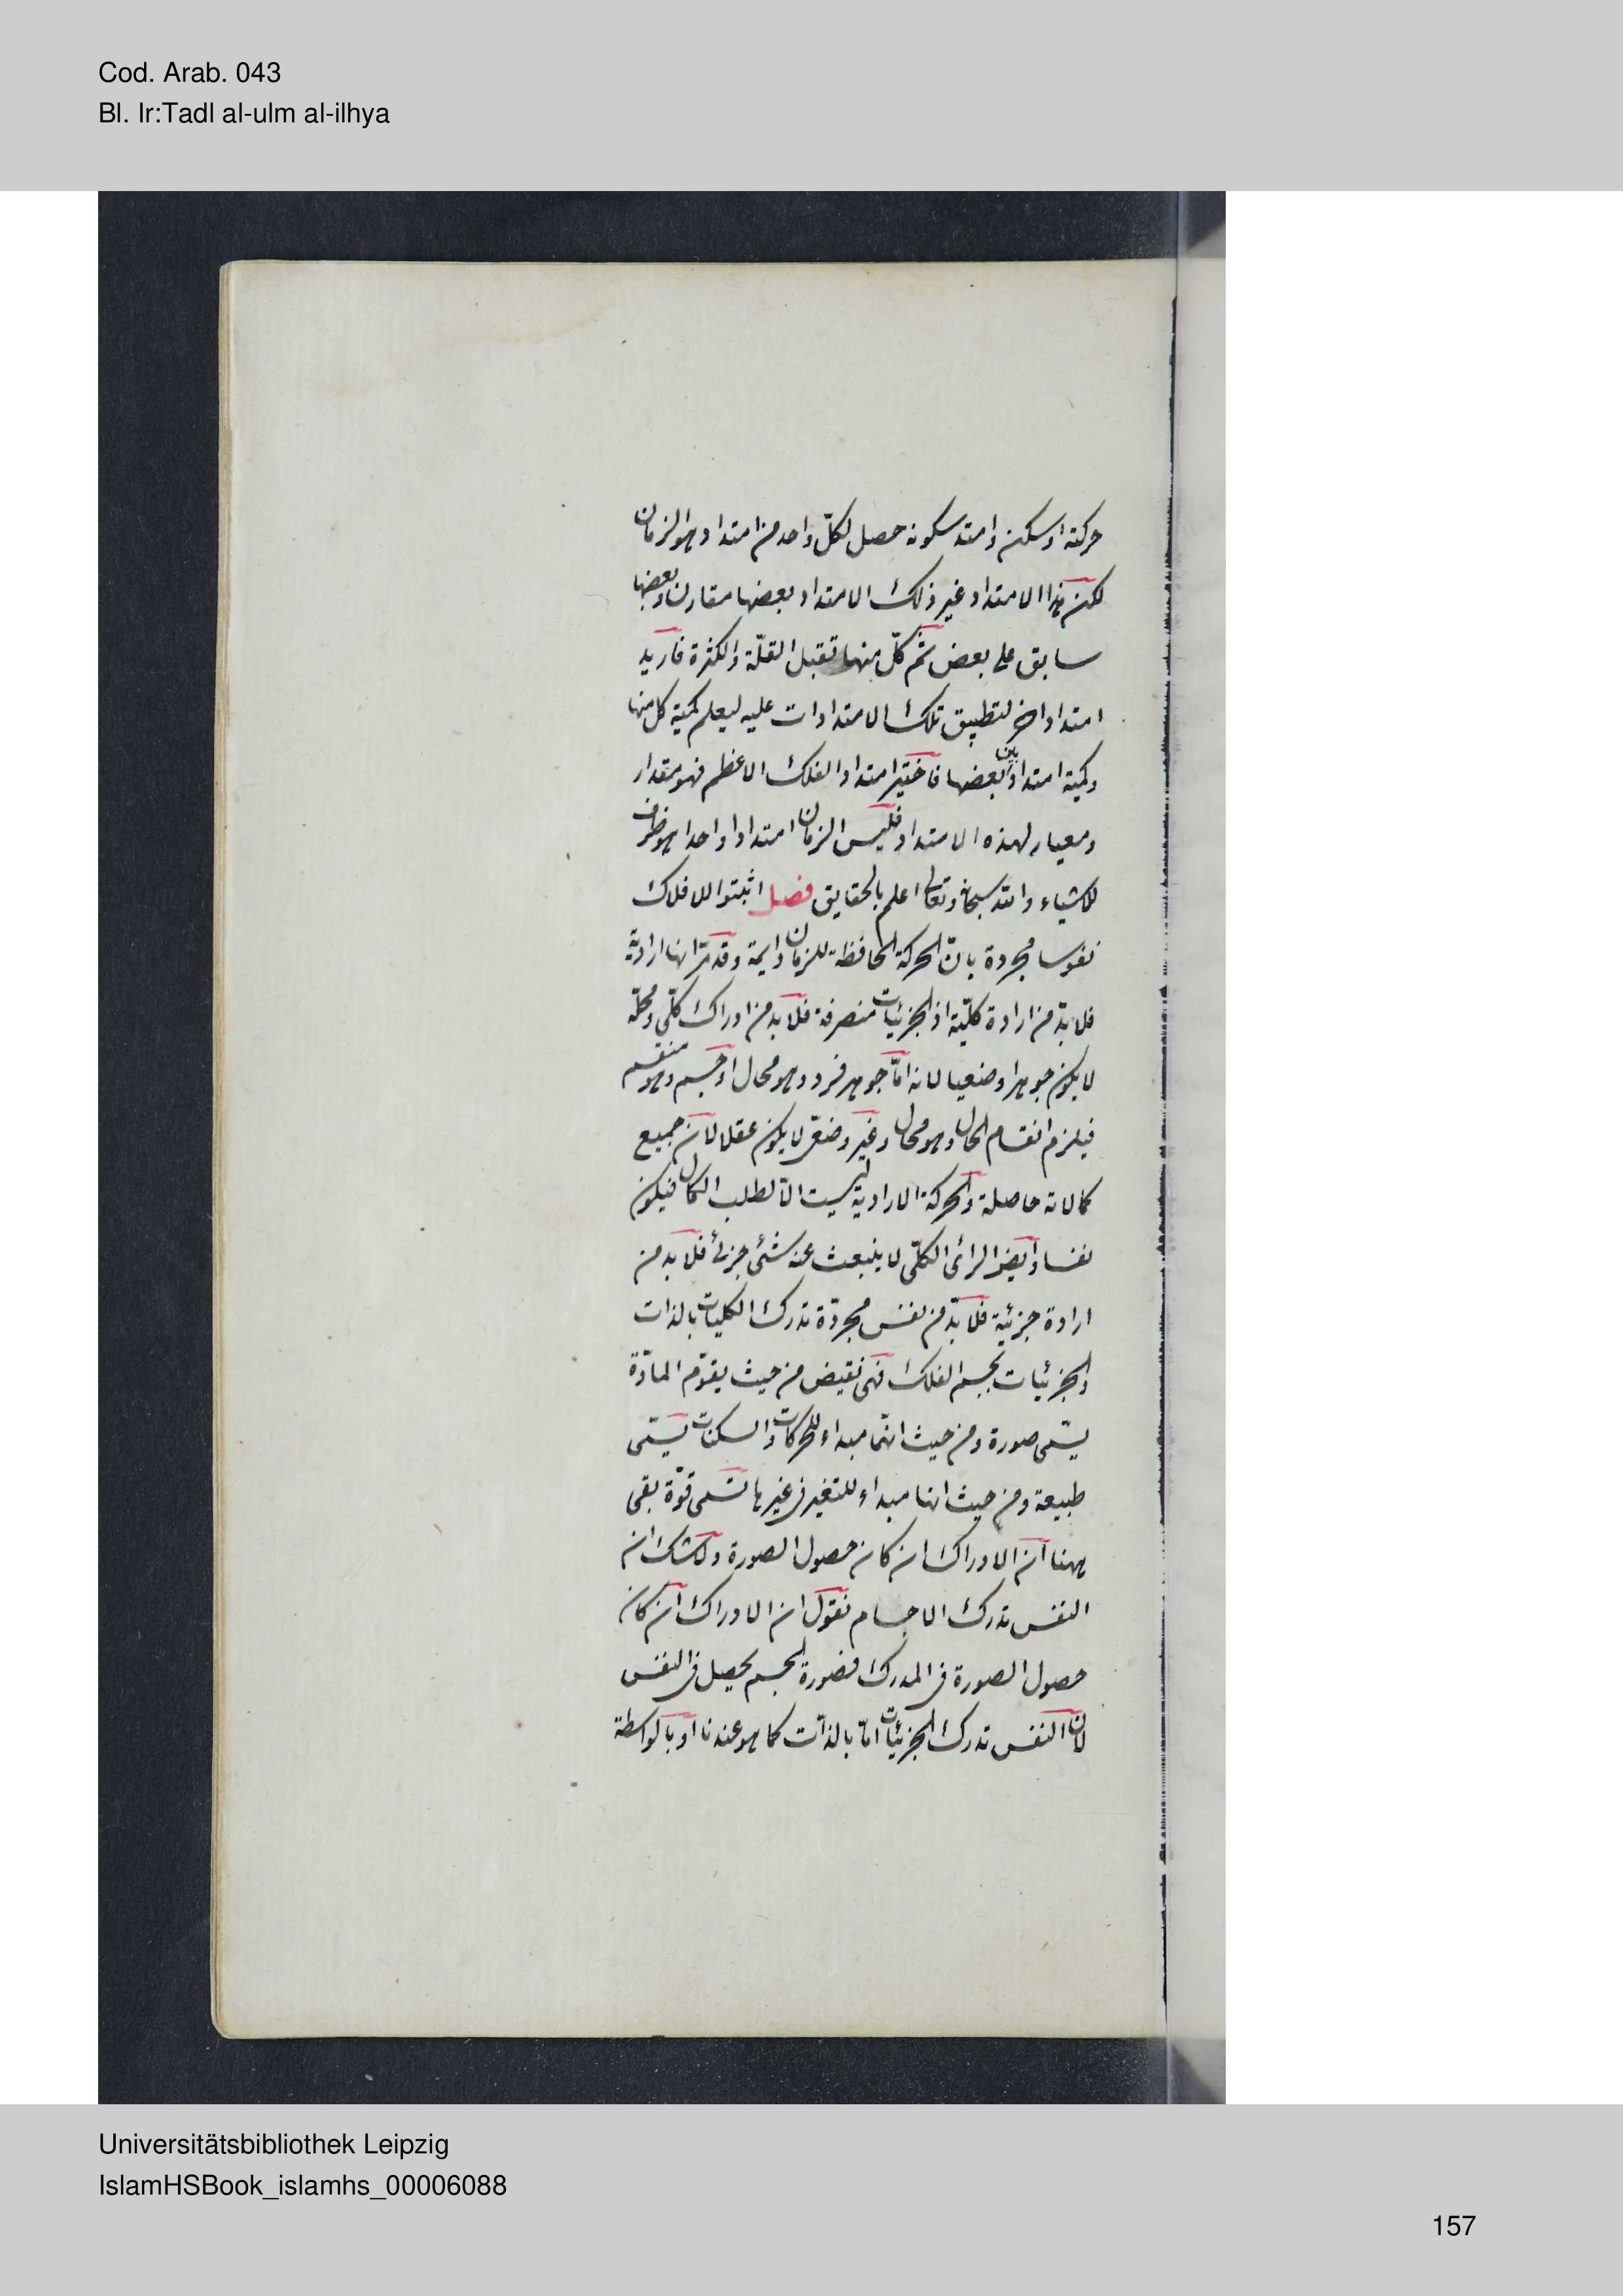 Cod. Arab. 043
Bl. Ir:Tadl al-ulm al-ilhya
حركته او سكن وامتد سكونه حصل لكلّ واحد من امتداد هو الزمان
لكن هذا الامتداد غير ذلك الامتداد بعضها مقارن وبعضها
سابق على بعض ثم كلّ منها تقبل القلّة والكثرة فاريد
امتداد اخر لتطبيق تلك الامتدادات عليه ليعلم كمية كل منها
وكمية امتداد بين بعضها فاختير امتداد الفلك الاعظم فهو مقدار
ومعيار لهذه الامتداد فليس الزمان امتدادا واحدا هو ظرف
للاشياء والله سبحانه وتعالى اعلم بالحقايق فصل اثبتوا للافلاك
نفوسا مجردة بانّ الحركة الحافظة للزمان دايمة وقد مرّ انها ارادية
فلا بدّ من ارادة كلّية اذ الجزئيات منصرفة فلا بد من ادراك كلّى ومحلّه
لا يكون جوهرا وضعيا لانه امّا جوهر فرد وهو محال او جسم وهو منقسم
فيلزم انقسام الحال وهو محال وغير وضعى لا يكون عقلا لان جميع
كمالاته حاصلة والحركة الارادية ليست الّا لطلب الكمال فيكون
نفسا وايضا الرائ الكلّى لا ينبعث عنه شئ جزئ فلا بد من
ارادة جزئية فلا بدّ من نفس مجردّة تدرك الكليات بالذات
والجزئيات بجسم الفلك فهى نقيض من حيث يقوّم المادّة
يسّمى صورة ومن حيث انها مبداء للحركات والسكنات يسّمى
طبيعة ومن حيث انها مبداء للتغير فى غيرها تسّمى قوّة بقى
ههنا ان الادراك ان كان حصول الصورة ولا شك ان
النفس تدرك الاجسام نقول ان الادراك ان كان
حصول الصورة فى المدرك فصورة الجسم يحصل فى النفس
لان النفس تدرك الجزئيات امّا بالذات كما هو عندنا او بالواسطة
Universitätsbibliothek Leipzig
IslamHSBook_islamhs_00006088
157